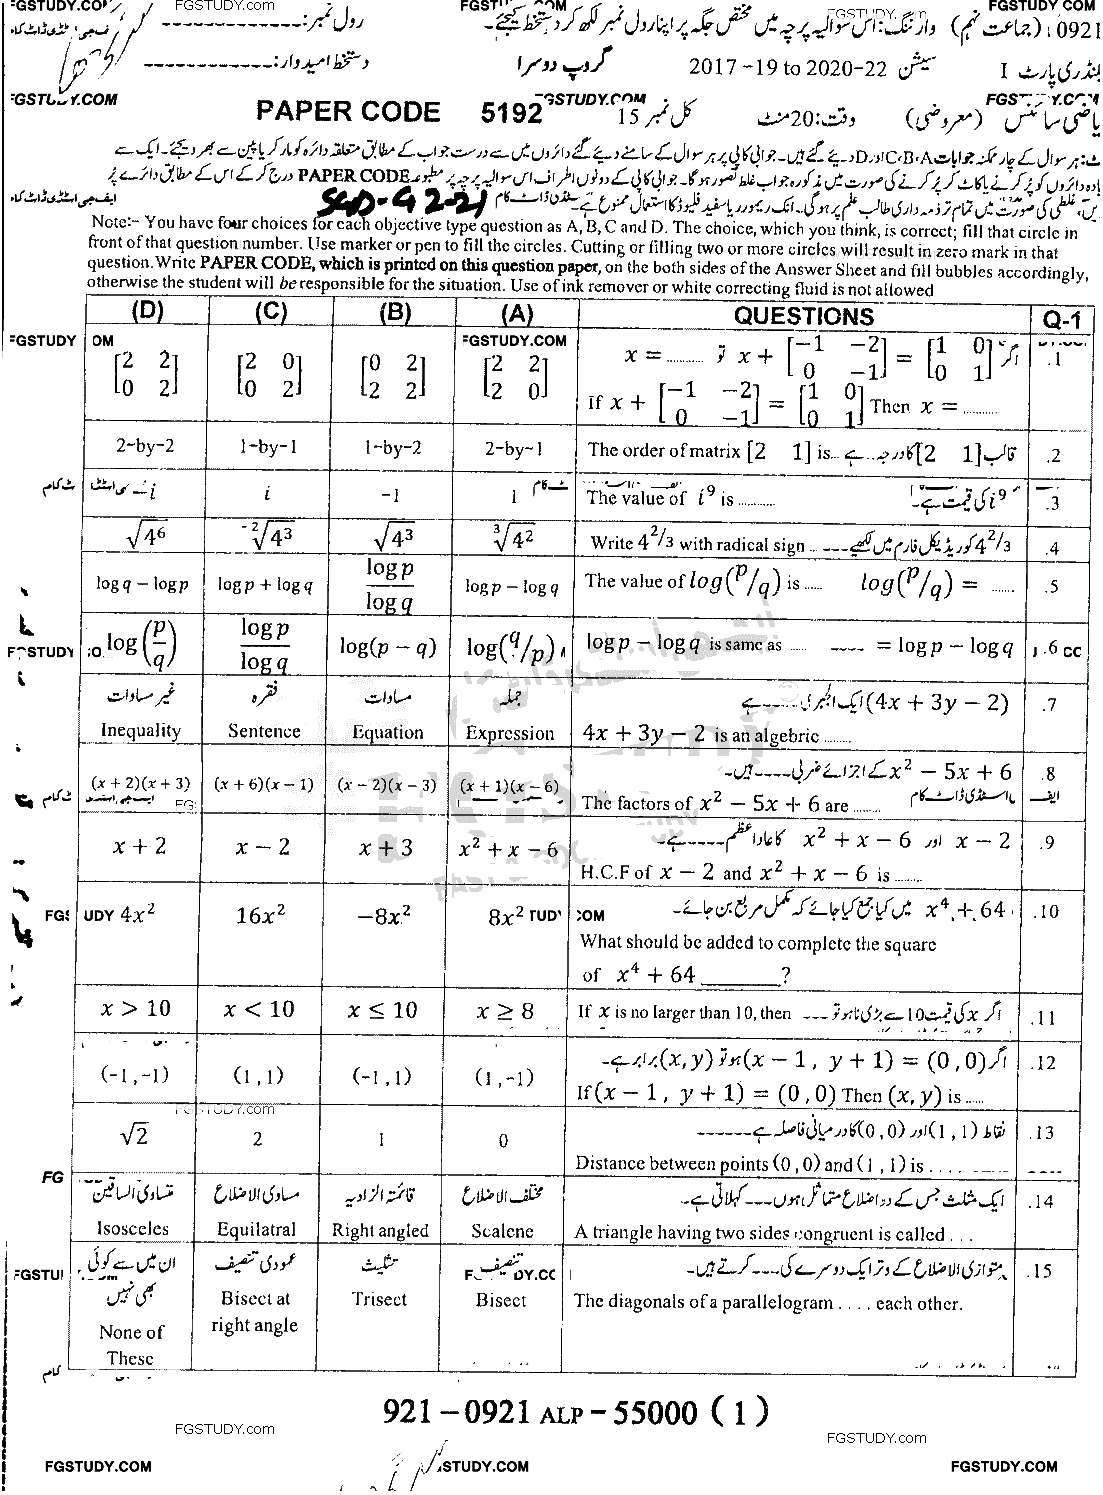 FGSTUDY.COM FGSTUDY.com FGSTUDY.COM FGSTUDY.com FGSTUDY COM
0921 (جماعت نہم) وارننگ: اس سوالیہ پرچہ میں مختص جگہ پر اپنا رول نمبر لکھ کر دستخط کیجئے۔ رول نمبر: ------------
نڈری پارٹ I سیشن 2017 -19 to 2020-22 گروپ دوسرا دستخط امیدوار: ------------
FGSTUDY.COM
یاضی سائنس (معروضی) وقت: 20 منٹ کل نمبر 15 PAPER CODE 5192
ٹ: ہر سوال کے چار ممکنہ جوابات A،B،C اور D دیئے گئے ہیں۔ جوابی کاپی پر ہر سوال کے سامنے دیئے گئے دائروں میں سے درست جواب کے مطابق متعلقہ دائرہ کو مارکر یا پین سے بھر دیجئے۔ ایک سے
یادہ دائروں کو پُر کرنے یا کاٹ کر پُر کرنے کی صورت میں مذکورہ جواب غلط تصور ہوگا۔ جوابی کاپی کے دونوں اطراف اس سوالیہ پرچہ پر مطبوعہ PAPER CODE درج کر کے اس کے مطابق دائرے پُر
یں، غلطی کی صورت میں تمام تر ذمہ داری طالب علم پر ہوگی۔ انک ریموور یا سفید فلیوڈ کا استعمال ممنوع ہے۔ SGD-G2-21
Note:- You have four choices for each objective type question as A, B, C and D. The choice, which you think, is correct; fill that circle in
front of that question number. Use marker or pen to fill the circles. Cutting or filling two or more circles will result in zero mark in that
question. Write PAPER CODE, which is printed on this question paper, on the both sides of the Answer Sheet and fill bubbles accordingly,
otherwise the student will be responsible for the situation. Use of ink remover or white correcting fluid is not allowed
(D) (C) (B) (A) QUESTIONS Q-1
FGSTUDY OM FGSTUDY.COM
x = ......... تو x + [-1 -2; 0 -1] = [1 0; 0 1] اگر .1
[2 2; 0 2] [2 0; 0 2] [0 2; 2 2] [2 2; 2 0] If x + [-1 -2; 0 -1] = [1 0; 0 1] Then x = .........
2-by-2 1-by-1 1-by-2 2-by-1 The order of matrix [2 1] is... قالب [2 1] کا درجہ ... ہے .2
-i i -1 1 The value of i⁹ is .......... i⁹ کی قیمت ہے۔ .3
√4⁶ ⁻²√4³ √4³ ³√4² Write 4^2/3 with radical sign ... 4^2/3 کو ریڈیکل فارم میں لکھیے ---- .4
log q − log p log p + log q log p / log q log p − log q The value of log(p/q) is ..... log(p/q) = ...... .5
FGSTUDY log(p/q) log p / log q log(p − q) log(q/p) log p − log q is same as ..... ---- = log p − log q .6
غیر مساوات فقرہ مساوات جملہ (4x + 3y − 2) ایک الجبری ---- ہے .7
Inequality Sentence Equation Expression 4x + 3y − 2 is an algebric .......
(x + 2)(x + 3) (x + 6)(x − 1) (x − 2)(x − 3) (x + 1)(x − 6) x² − 5x + 6 کے اجزائے ضربی ---- ہیں۔ .8
The factors of x² − 5x + 6 are ........
x + 2 x − 2 x + 3 x² + x − 6 x − 2 اور x² + x − 6 کا عاداعظم ---- ہے۔ .9
H.C.F of x − 2 and x² + x − 6 is ........
FGS UDY 4x² 16x² −8x² 8x² TUDY COM x⁴ + 64 میں کیا جمع کیا جائے کہ مکمل مربع بن جائے۔ .10
What should be added to complete the square
of x⁴ + 64 ________?
x > 10 x < 10 x ≤ 10 x ≥ 8 If x is no larger than 10, then اگر x کی قیمت 10 سے بڑی نہ ہو تو ---- .11
(-1,-1) (1,1) (-1,1) (1,-1) اگر (x − 1, y + 1) = (0,0) ہو تو (x,y) برابر ہے۔ .12
If (x − 1, y + 1) = (0,0) Then (x,y) is .....
FGSTUDY.com
√2 2 1 0 نقاط (1,1) اور (0,0) کا درمیانی فاصلہ ہے ------ .13
Distance between points (0,0) and (1,1) is ....
FG متساوی الساقین مساوی الاضلاع قائمتہ الزاویہ مختلف الاضلاع ایک مثلث جس کے دو اضلاع متماثل ہوں ---- کہلاتی ہے۔ .14
Isosceles Equilatral Right angled Scalene A triangle having two sides congruent is called ...
FGSTUI ان میں سے کوئی بھی نہیں عمودی تنصیف تثلیث تنصیف متوازی الاضلاع کے وتر ایک دوسرے کی ---- کرتے ہیں۔ .15
None of These Bisect at right angle Trisect Bisect The diagonals of a parallelogram .... each other.
921 – 0921 ALP – 55000 (1)
FGSTUDY.com FGSTUDY.com
FGSTUDY.COM STUDY.COM FGSTUDY.COM